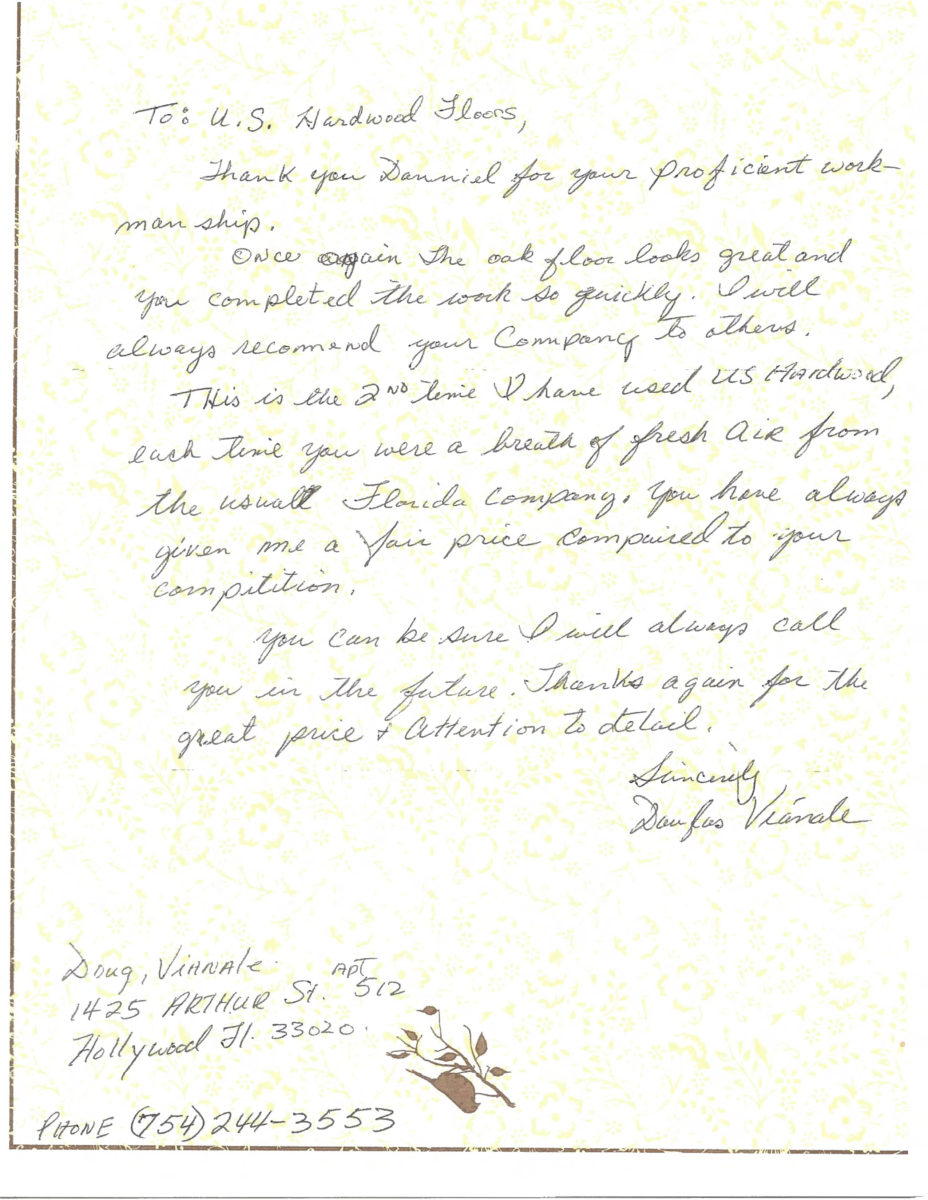 To: U.S. Hardwood Floors,
Thank you Danniel for your proficient work-
man ship.
Once again the oak floor looks great and
you completed the work so quickly. I will
always recomend your Company to others.
THis is the 2ND time I have used US Hardwood,
each time you were a breath of fresh AIR from
the usual Florida company. You have always
given me a fair price compaired to your
compitition.
You can be sure I will always call
you in the future. Thanks again for the
great price + Attention to detail.
Sincerely
Douglas Vianale
Doug, ViANAle
APT
1425 ARTHUR St. 512
Hollywood Fl. 33020.
PHONE (754) 244-3553